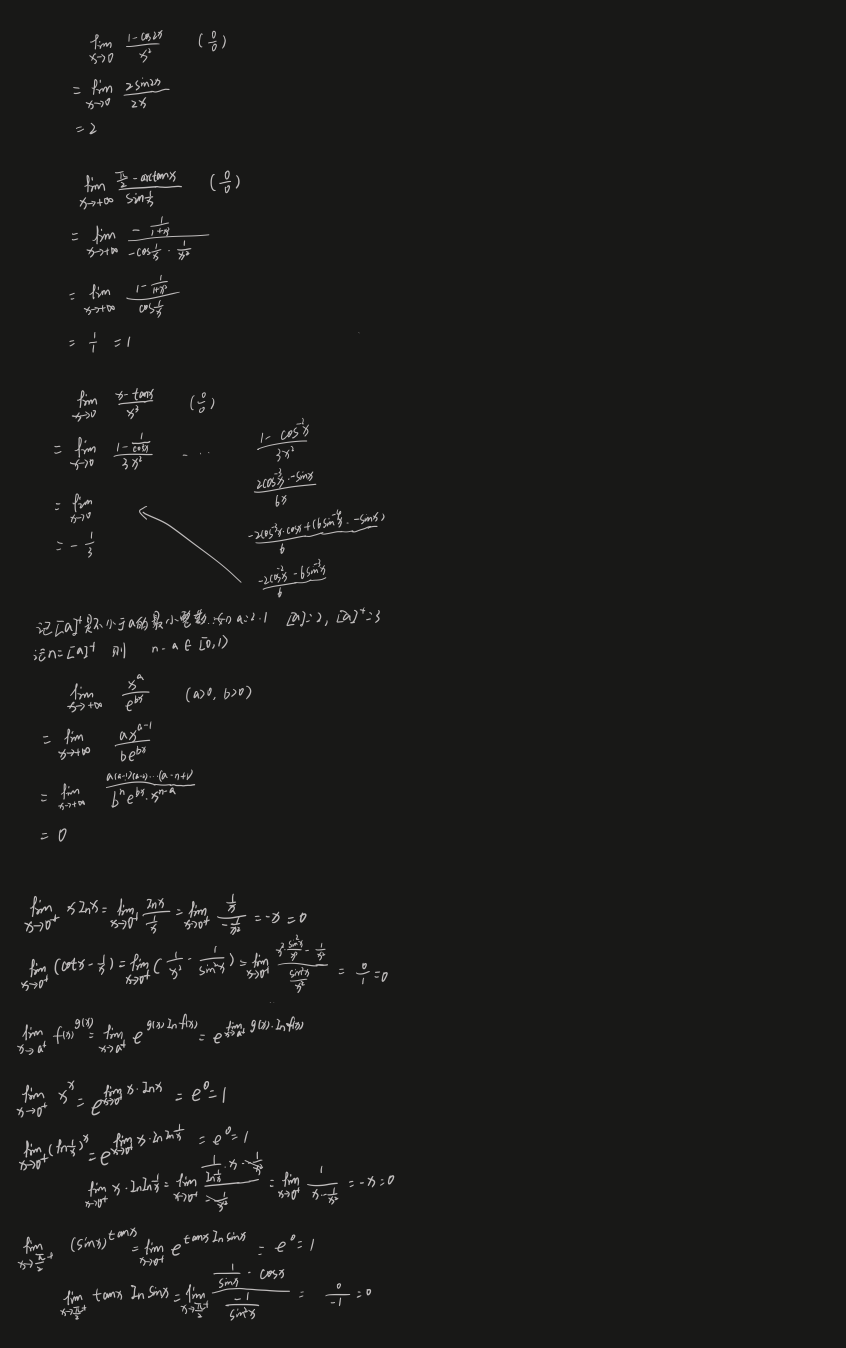 lim x→0 (1-cos2x)/x² (0/0)
= lim x→0 2sin2x/2x
= 2
lim x→+∞ (π/2 - arctanx)/(sin 1/x) (0/0)
= lim x→+∞ (- 1/(1+x²))/(-cos 1/x · 1/x²)
= lim x→+∞ (1 - 1/(1+x²))/(cos 1/x)
= 1/1 = 1
lim x→0 (x - tanx)/x³ (0/0)
= lim x→0 (1 - 1/cos²x)/3x² - ... (1 - cos⁻²x)/3x²
(2cos⁻³x · -sinx)/6x
= lim x→0
(-2cos⁻³x · cosx + (6sin⁻⁴x · -sinx))/6
= - 1/3
(-2cos⁻²x - 6sin⁻³x)/6
记[a]⁺是不小于a的最小整数.如 a=2.1 [a]=2, [a]⁺=3
记n=[a]⁺ 则 n-a ∈ [0,1)
lim x→+∞ x^a/e^(bx) (a>0, b>0)
= lim x→+∞ ax^(a-1)/(be^(bx))
= lim x→+∞ a(a-1)(a-2)...(a-n+1)/(b^n e^(bx) · x^(n-a))
= 0
lim x→0⁺ x lnx = lim x→0⁺ lnx/(1/x) = lim x→0⁺ (1/x)/(-1/x²) = -x = 0
lim x→0⁺ (cotx - 1/x) = lim x→0⁺ (1/x² - 1/sin²x) = lim x→0⁺ (x² sin²x/x² - 1/x²)/(sin²x/x²) = 0/1 = 0
lim x→a⁺ f(x)^g(x) = lim x→a⁺ e^(g(x) lnf(x)) = e^(lim x→a⁺ g(x) · lnf(x))
lim x→0⁺ x^x = e^(lim x→0⁺ x · lnx) = e⁰ = 1
lim x→0⁺ (ln 1/x)^x = e^(lim x→0⁺ x · ln ln 1/x) = e⁰ = 1
lim x→0⁺ x · ln ln 1/x = lim x→0⁺ (1/(ln 1/x) · x · -1/x²)/(-1/x²) = lim x→0⁺ 1/(x · -1/x²) = -x = 0
lim x→π/2⁺ (sinx)^tanx = lim x→0⁺ e^(tanx ln sinx) = e⁰ = 1
lim x→π/2⁺ tanx ln sinx = lim x→π/2⁺ (1/sinx · cosx)/(-1/sin²x) = 0/-1 = 0